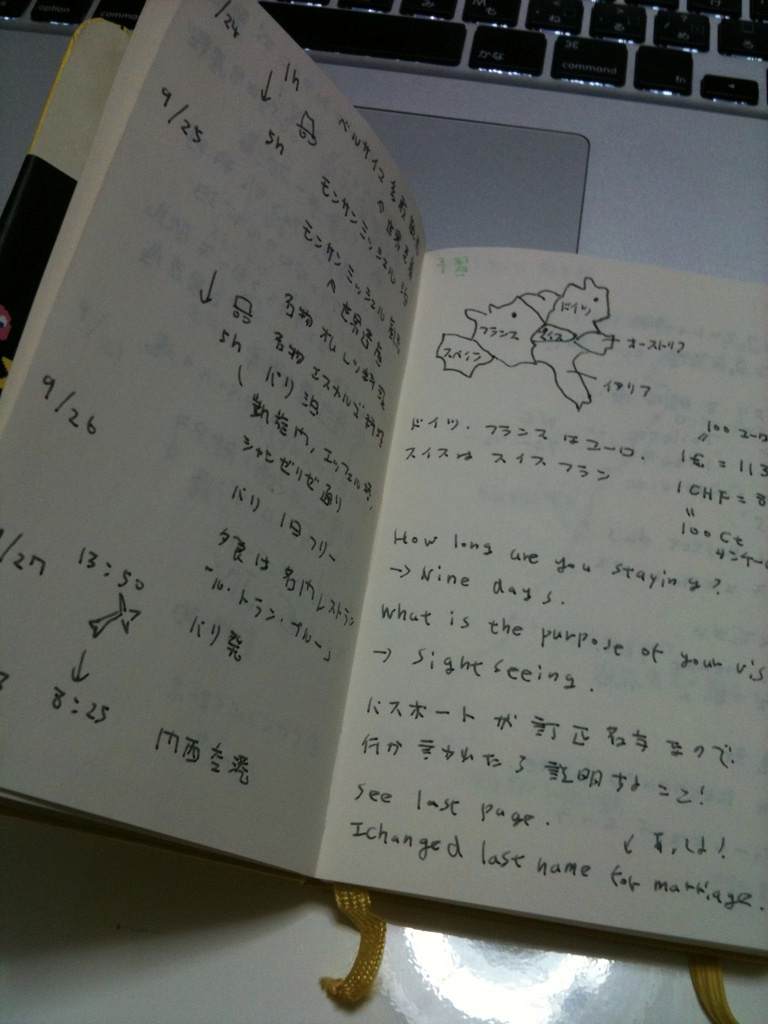 option
comma
かな
⌘
command
fn
/24
1h
↓
5h
ベルサイユ宮殿
へ世界遺産
9/25
モンサンミッシェル泊
モンサンミッシェル
へ世界遺産
↓
5h
名物オムレツ
名物エスカルゴ料理
パリ泊
凱旋門、エッフェル塔、
シャンゼリゼ通り
9/26
パリ 1日フリー
夕食は名門レストラン
ル・トラン・ブルー」
/27
13:50
パリ発
↓
8:25
関西空港
予習
ドイツ
フランス
スイス
スペイン
オーストリア
イタリア
ドイツ・フランスはユーロ.
スイスは スイスフラン
100ユーロ
〃
1€ = 113
1CHF = 8
〃
100Ct
サンチー
How long are you staying?
→ Nine days.
What is the purpose of your vis
→ Sightseeing.
パスポートが訂正
行か
説明すること!
see last page.
↓
I changed last name for marriage.